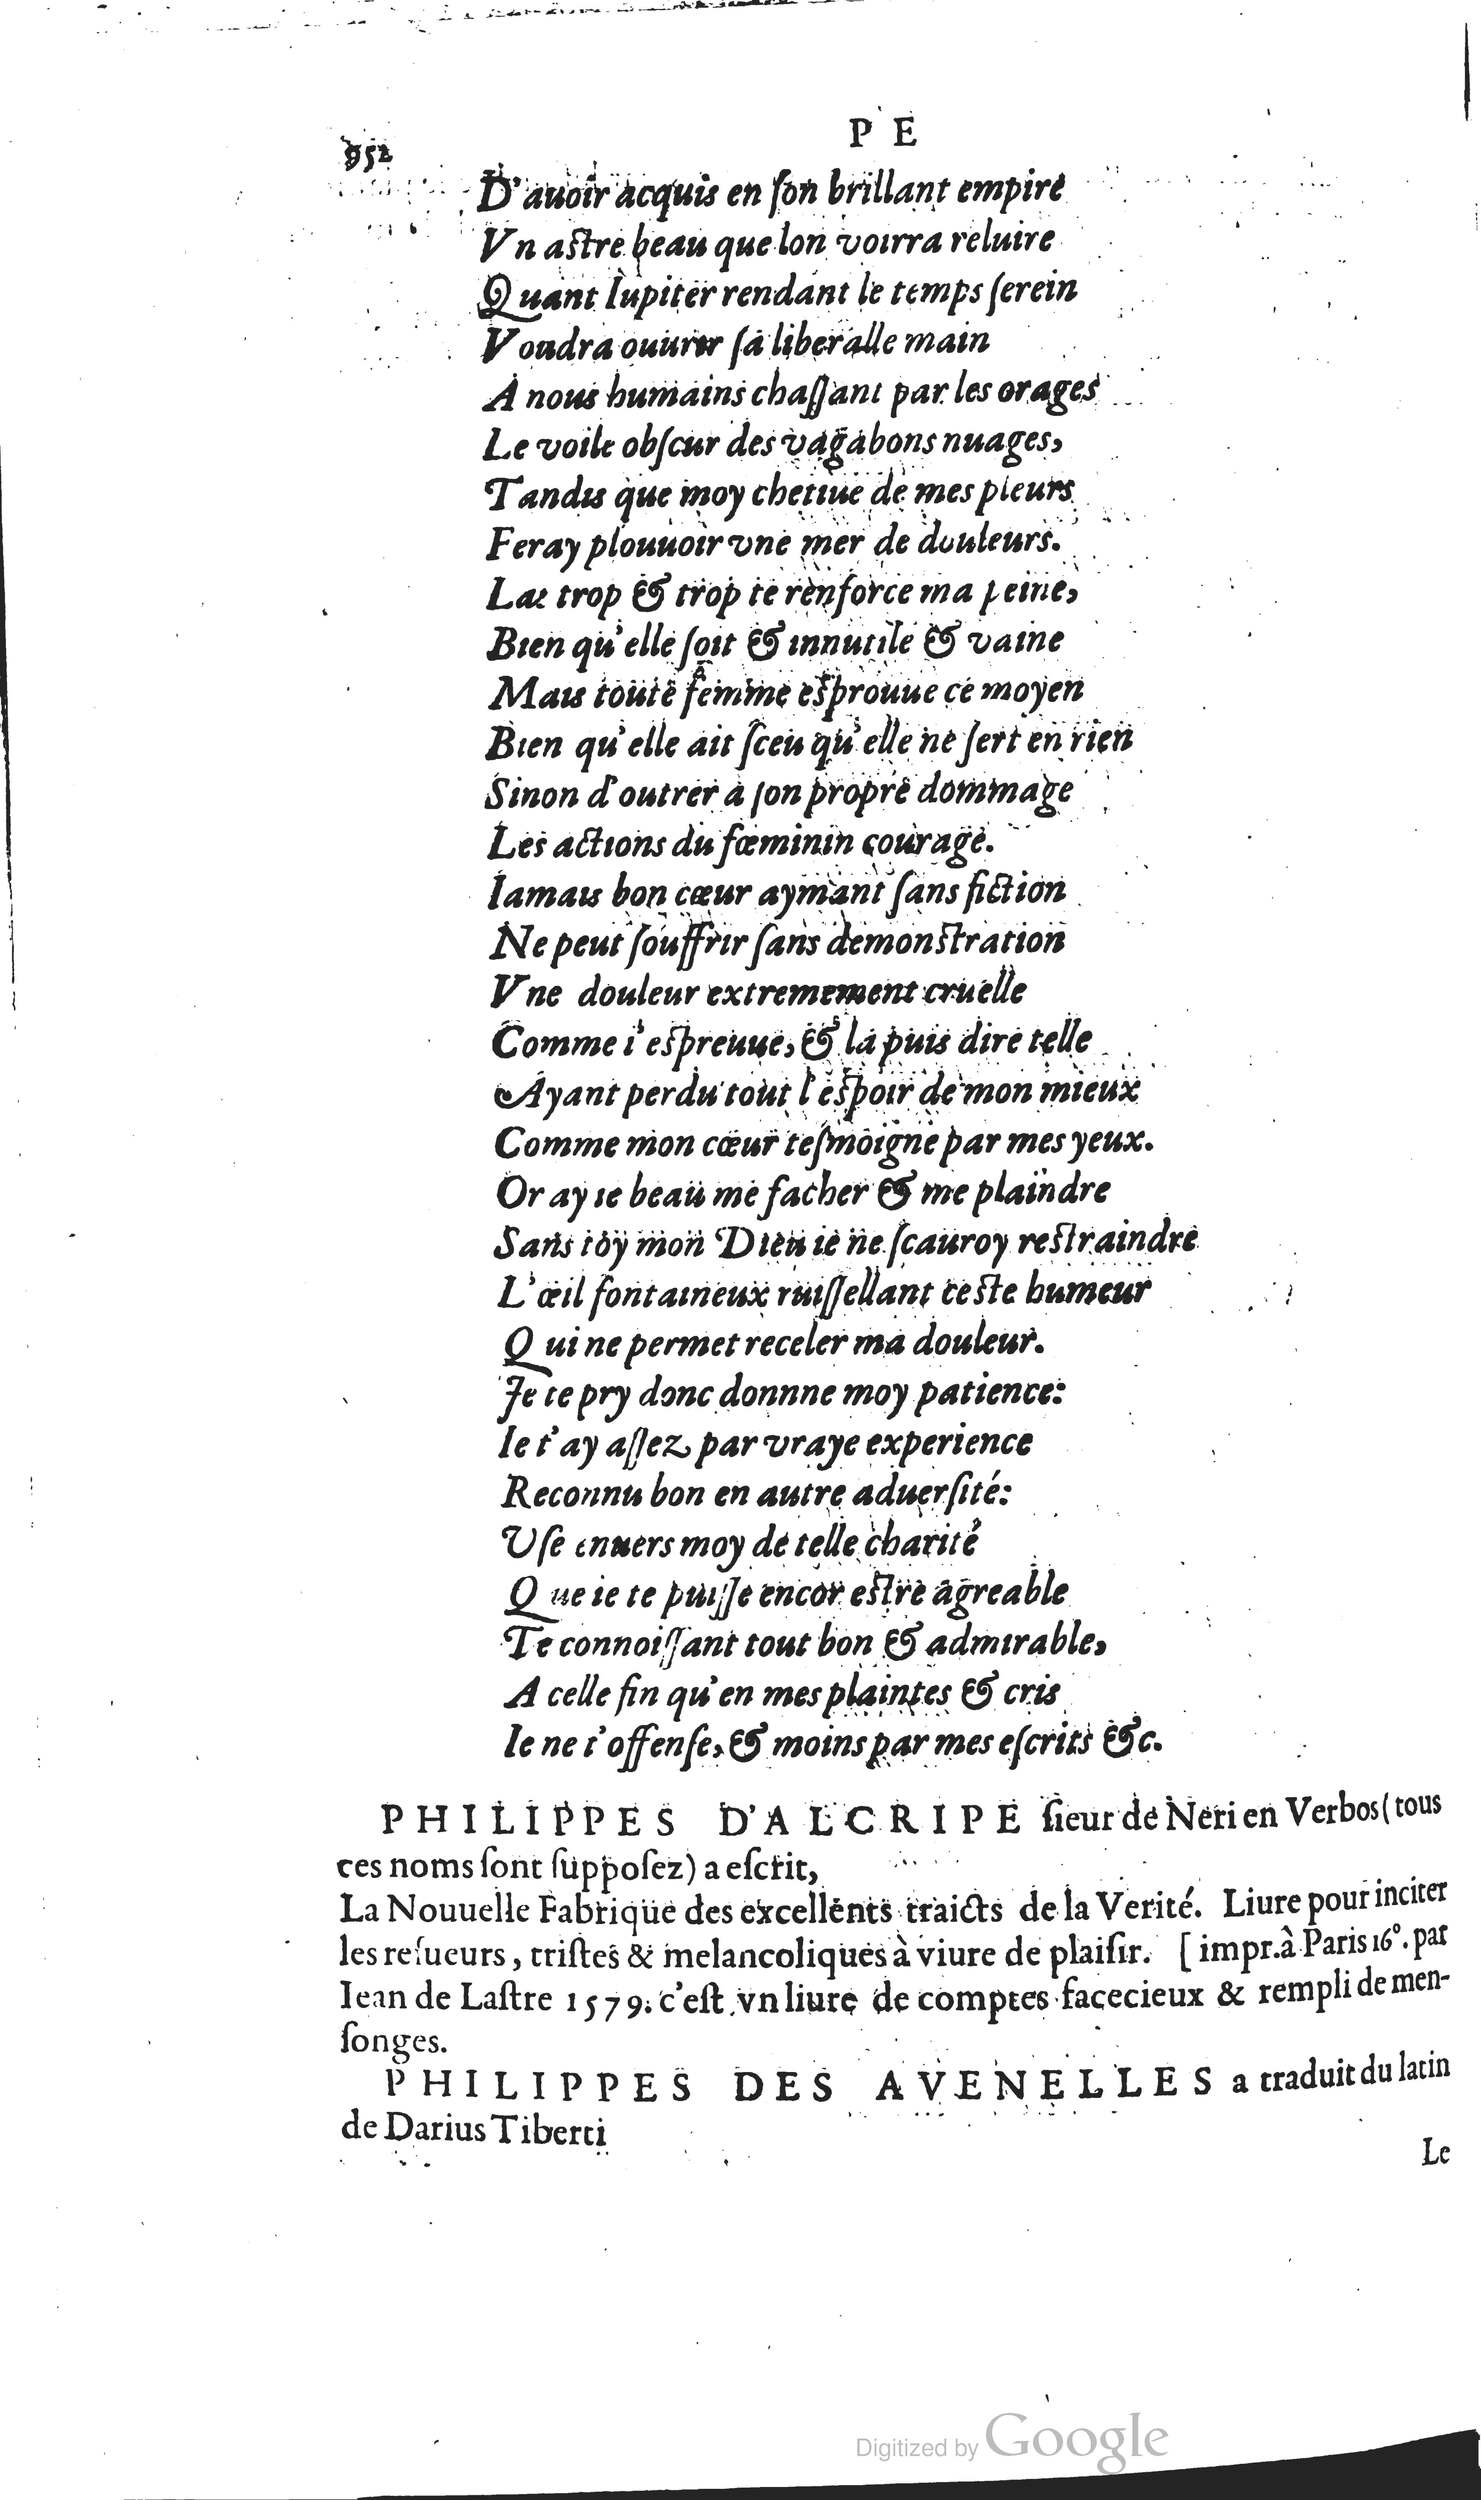 952
P E
D'auoir acquis en ſon brillant empire
Vn aſtre beau que lon voirra reluire
Quant Iupiter rendant le temps ſerein
Voudra ouurir ſa liberalle main
A nous humains chaſſant par les orages
Le voile obſcur des vagabons nuages,
Tandis que moy chetiue de mes pleurs
Feray plouuoir vne mer de douleurs.
Las trop & trop ie renforce ma peine,
Bien qu'elle ſoit & innutile & vaine
Mais toute femme eſprouue ce moyen
Bien qu'elle ait ſceu qu'elle ne ſert en rien
Sinon d'outrer à ſon propre dommage
Les actions du fœminin courage.
Iamais bon cœur aymant ſans fiction
Ne peut ſouffrir ſans demonſtration
Vne douleur extremement cruelle
Comme i'eſpreuue, & la puis dire telle
Ayant perdu tout l'eſpoir de mon mieux
Comme mon cœur teſmoigne par mes yeux.
Or ay ie beau me facher & me plaindre
Sans toy mon Dieu ie ne ſcauroy reſtraindre
L'œil fontaineux ruiſſellant ceſte humeur
Qui ne permet receler ma douleur.
Je te pry donc donnne moy patience:
Ie t'ay aſſez par vraye experience
Reconnu bon en autre aduerſité:
Vſe enuers moy de telle charité
Que ie te puiſſe encor eſtre agreable
Te connoiſſant tout bon & admirable,
A celle fin qu'en mes plaintes & cris
Ie ne t'offenſe, & moins par mes eſcrits &c.
PHILIPPES D'ALCRIPE ſieur de Neri en Verbos (tous
ces noms ſont ſuppoſez) a eſcrit,
La Nouuelle Fabrique des excellents traicts de la Verité. Liure pour inciter
les reſueurs, triſtes & melancoliques à viure de plaiſir. [impr. à Paris 16°. par
Iean de Laſtre 1579. c'eſt vn liure de comptes facecieux & rempli de men-
ſonges.
PHILIPPES DES AVENELLES a traduit du latin
de Darius Tiberti
Le
Digitized by Google